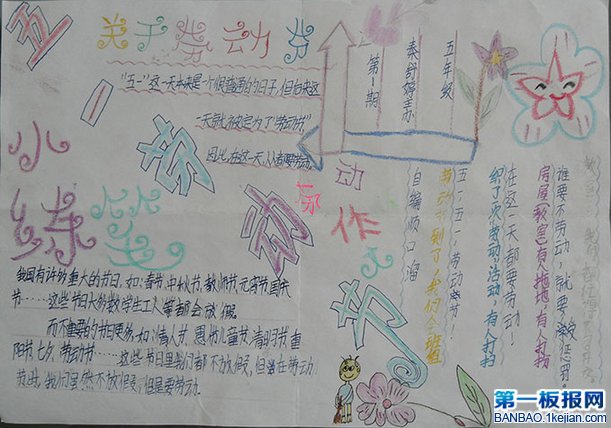 五一劳动节
关于劳动节
"五一"这一天本来是一个很普通的日子,但后来这
一天就被定为了"劳动节"
因此,在这一天,人人都要劳动。
第1期
秦舒婷办
五年级
小练笔
我国有许多重大的节日,如:春节、中秋节、教师节、元宵节、国庆
节……这些节日大多数学生工人等都会放假
而不重要的节日更多,如:情人节、愚人节、儿童节、清明节、重
阳节、七夕、劳动节……这些节日里我们都不放假,但当在劳动
节时,我们虽然不放假,但是要劳动.
劳动作
自编顺口溜
五一,五一,劳动节!
劳动节到了,我们全班组
织了次劳动活动,有人打扫
在这一天都要劳动!
房屋(教室)有人拖地,有人捣
谁要不劳动,就要被惩罚。
第一板报网
BANBAO.1kejian.com